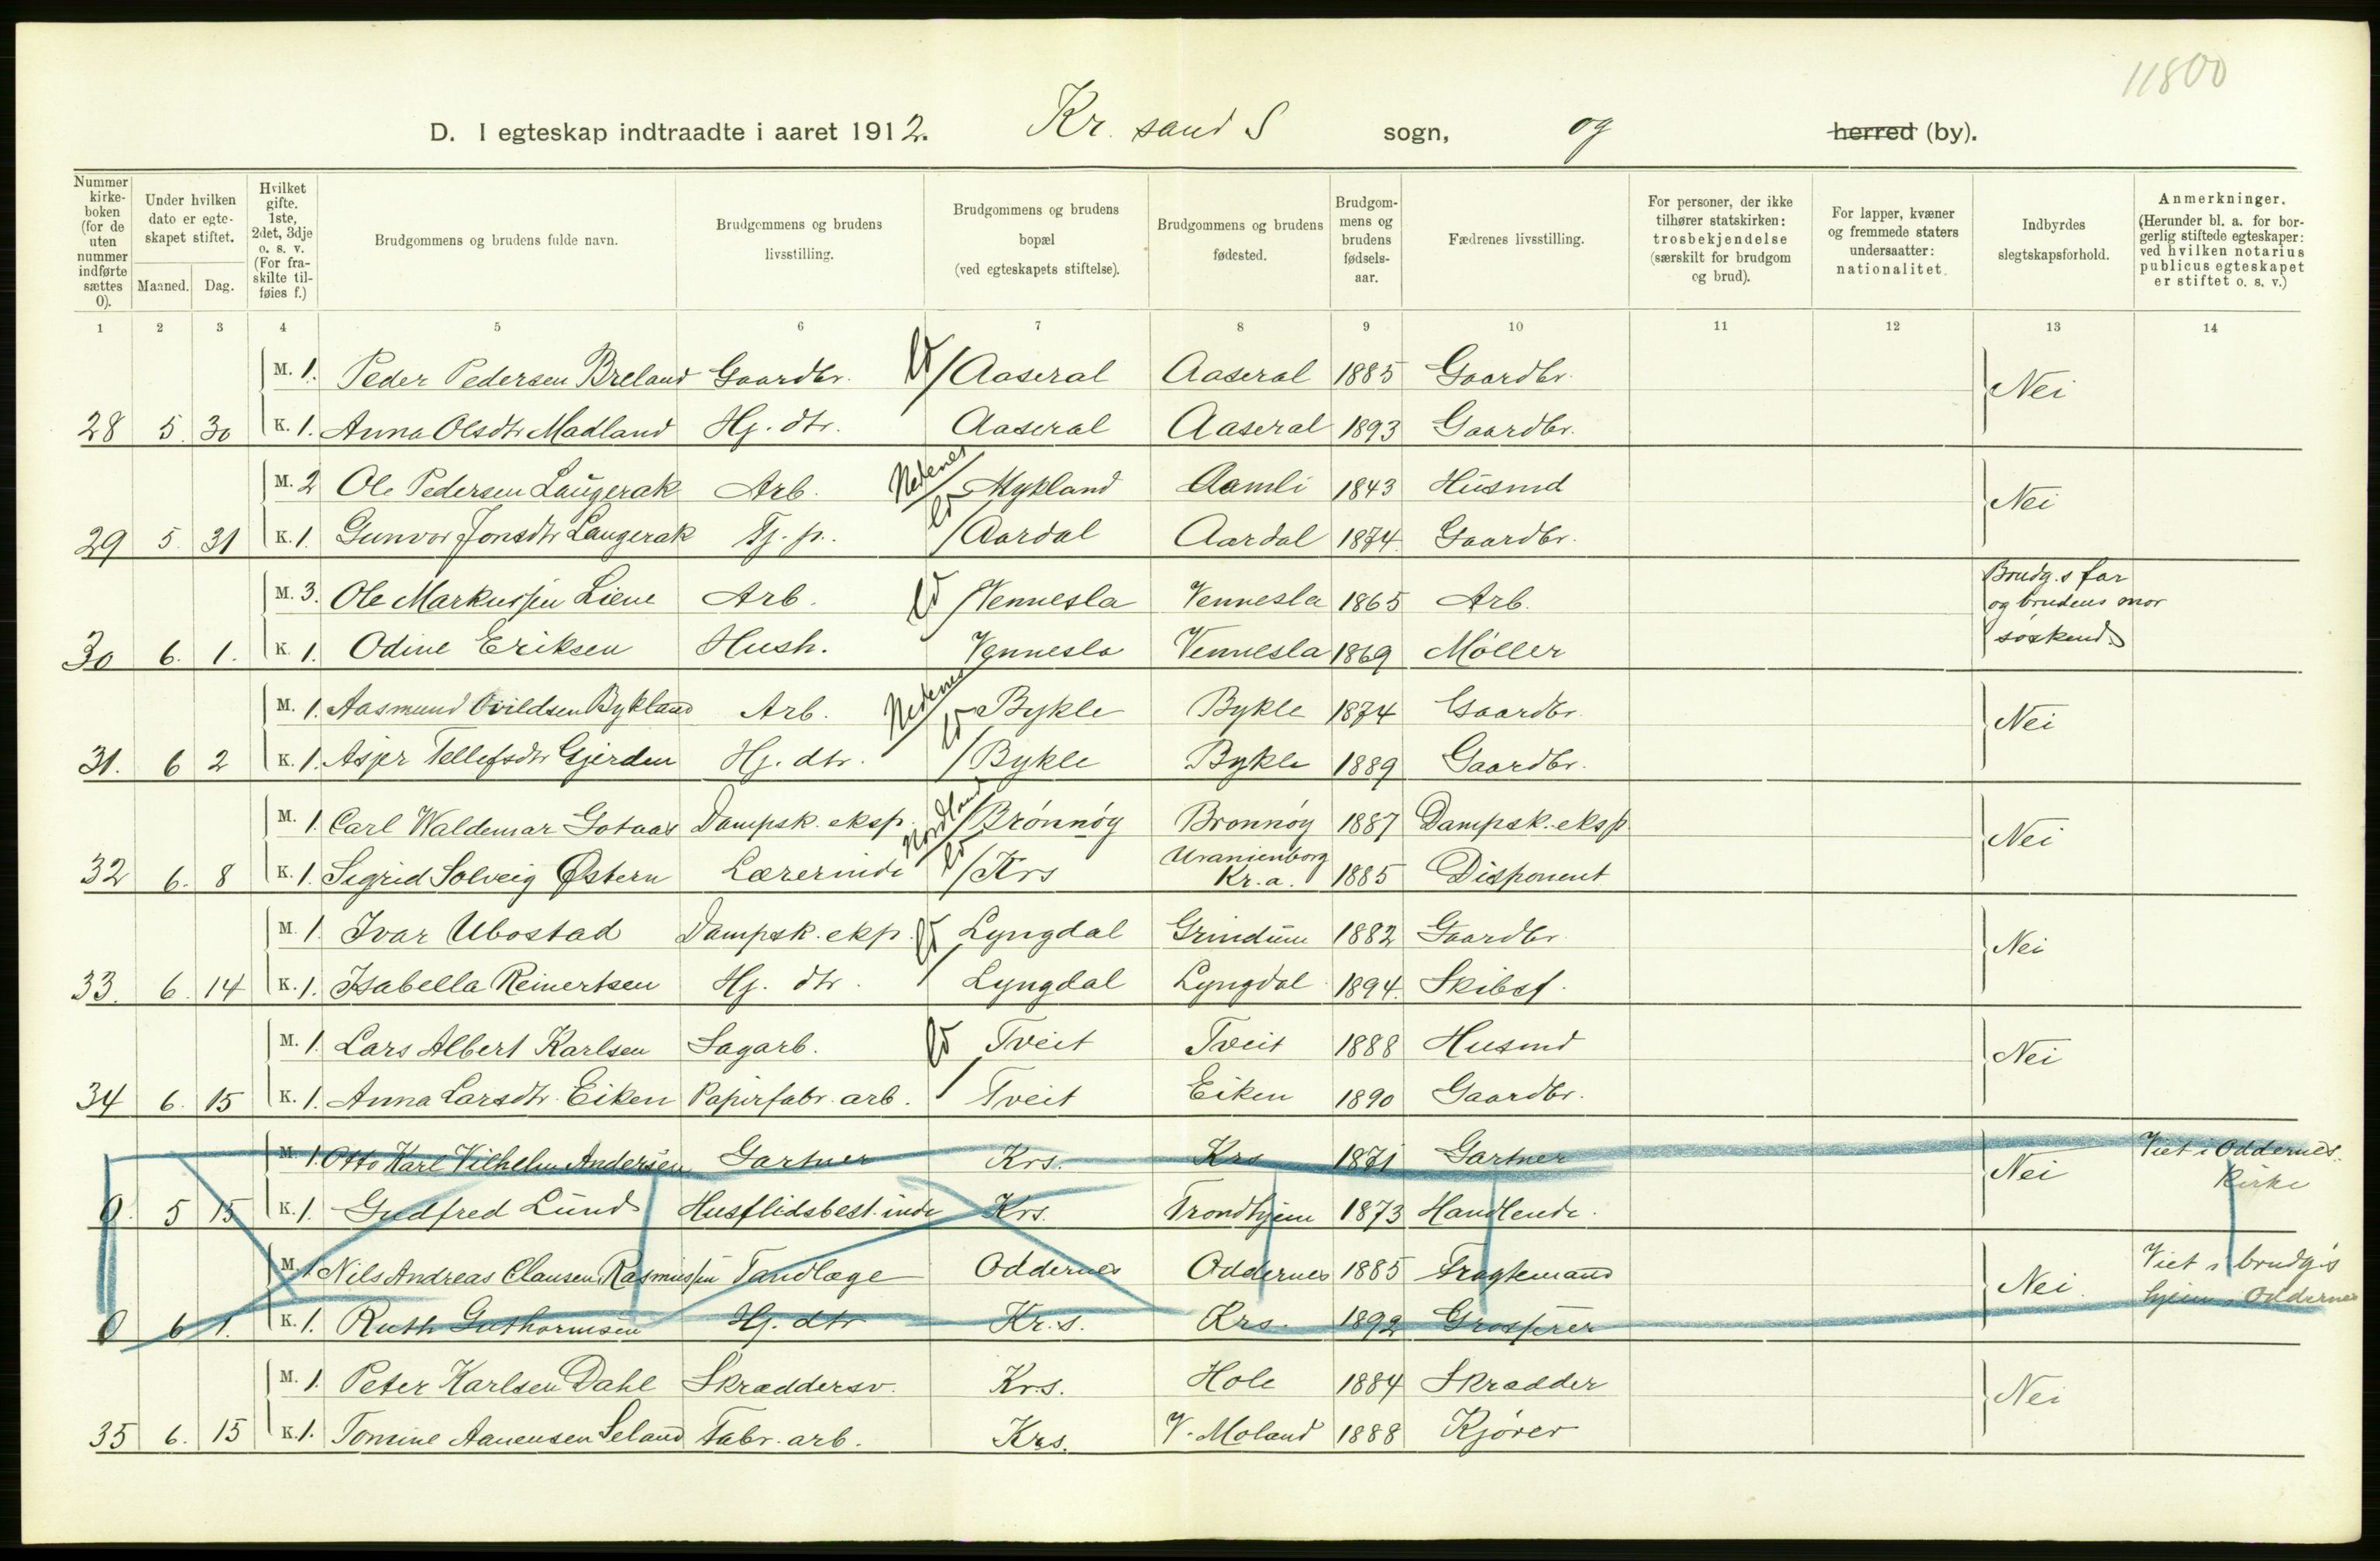 11800
D. I egteskap indtraadte i aaret 1912. Kr. sand S sogn, og herred (by).
Nummer kirkeboken (for de uten nummer indførte sættes 0).
Under hvilken dato er egteskapet stiftet.
Maaned. Dag.
Hvilket gifte. 1ste, 2det, 3dje o. s. v. (For fraskilte tilføies f.)
Brudgommens og brudens fulde navn.
Brudgommens og brudens livsstilling.
Brudgommens og brudens bopæl (ved egteskapets stiftelse).
Brudgommens og brudens fødested.
Brudgommens og brudens fødselsaar.
Fædrenes livsstilling.
For personer, der ikke tilhører statskirken: trosbekjendelse (særskilt for brudgom og brud).
For lapper, kvæner og fremmede staters undersaatter: nationalitet.
Indbyrdes slegtskapsforhold.
Anmerkninger. (Herunder bl. a. for borgerlig stiftede egteskaper: ved hvilken notarius publicus egteskapet er stiftet o. s. v.)
1 2 3 4 5 6 7 8 9 10 11 12 13 14
M. 1. Peder Pedersen Breland Gaardbr. Aaseral Aaseral 1885 Gaardbr. Nei
28 5. 30 K. 1. Anna Olsdtr Madland Hj. dtr. Aaseral Aaseral 1893 Gaardbr.
M. 2 Ole Pedersen Laugerak Arb. Nedenes Mykland Aamli 1843 Husmd Nei
29 5. 31 K. 1. Gunvor Jonsdtr Laugerak Tj. p. Aardal Aardal 1874 Gaardbr.
M. 3. Ole Markussen Liene Arb. Vennesla Vennesla 1865 Arb. Brudg.s far og brudens mor søskend
30 6. 1. K. 1. Odine Eriksen Hush. Vennesla Vennesla 1869 Møller
M. 1. Aasmund Ovildsen Bykland Arb. Nedenes Bykle Bykle 1874 Gaardbr. Nei
31. 6 2 K. 1. Asjer Tellefsdtr Gjerden Hj. dtr. Bykle Bykle 1889 Gaardbr.
M. 1. Carl Waldemar Gotaas Dampsk. eksp. Nordland Brønnøy Brønnøy 1887 Dampsk. eksp. Nei
32 6. 8 K. 1. Sigrid Solveig Østern Lærerinde Krs Uranienborg Kr.a. 1885 Disponent
M. 1. Ivar Ubostad Dampsk. ekp. Lyngdal Grindum 1882 Gaardbr. Nei
33. 6. 14 K. 1. Isabella Reinertsen Hj. dtr. Lyngdal Lyngdal 1894. Skibsf.
M. 1. Lars Albert Karlsen Sagarb. Tveit Tveit 1888 Husmd Nei
34 6. 15 K. 1. Anna Larsdtr. Eiken Papirfabr. arb. Tveit Eiken 1890 Gaardbr.
M. 1. Otto Karl Vilhelm Andersen Gartner Krs. Krs 1871 Gartner Nei Viet i Oddernes kirke
0. 5 15 K. 1. Gudfred Lund Husflidsbest.inde Krs. Trondhjem 1873 Handlende.
M. 1. Nils Andreas Clausen Rasmussen Tandlæge Oddernes Oddernes 1885 Fragtemand Nei. Viet i brudg's hjem, Oddernes
0 6 1. K. 1. Ruth Guthormsen Hj. dtr Kr.s. Krs. 1892 Grosserer
M. 1. Peter Karlsen Dahl Skræddersv. Krs. Hole 1884 Skrædder Nei
35 6. 15 K. 1. Tomine Aanensen Seland Fabr. arb. Krs. V. Moland 1888 Kjører